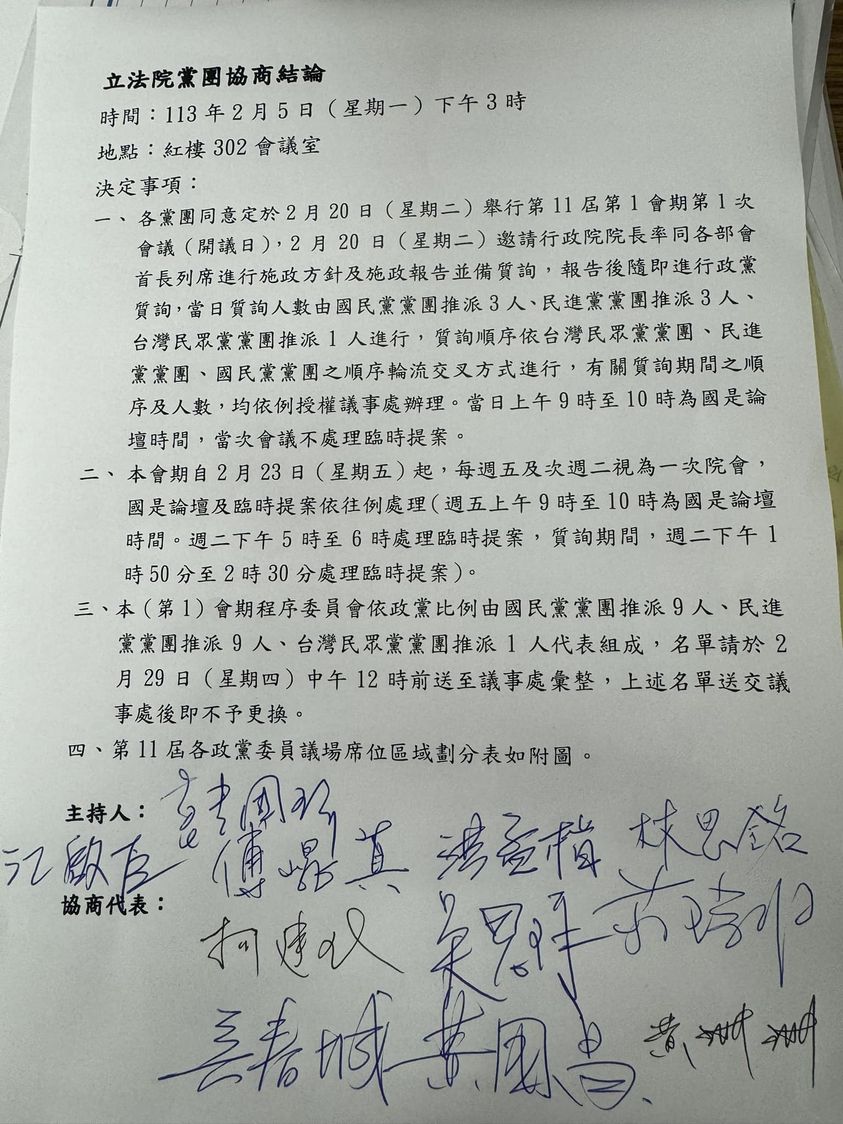 立法院黨團協商結論
時間：113年2月5日（星期一）下午3時
地點：紅樓302會議室
決定事項：
一、各黨團同意定於2月20日（星期二）舉行第11屆第1會期第1次
會議（開議日），2月20日（星期二）邀請行政院院長率同各部會
首長列席進行施政方針及施政報告並備質詢，報告後隨即進行政黨
質詢，當日質詢人數由國民黨黨團推派3人、民進黨黨團推派3人、
台灣民眾黨黨團推派1人進行，質詢順序依台灣民眾黨黨團、民進
黨黨團、國民黨黨團之順序輪流交叉方式進行，有關質詢期間之順
序及人數，均依例授權議事處辦理。當日上午9時至10時為國是論
壇時間，當次會議不處理臨時提案。
二、本會期自2月23日（星期五）起，每週五及次週二視為一次院會，
國是論壇及臨時提案依往例處理（週五上午9時至10時為國是論壇
時間。週二下午5時至6時處理臨時提案，質詢期間，週二下午1
時50分至2時30分處理臨時提案）。
三、本（第1）會期程序委員會依政黨比例由國民黨黨團推派9人、民進
黨黨團推派9人、台灣民眾黨黨團推派1人代表組成，名單請於2
月29日（星期四）中午12時前送至議事處彙整，上述名單送交議
事處後即不予更換。
四、第11屆各政黨委員議場席位區域劃分表如附圖。
主持人：韓國瑜
江啟臣 傅崐萁 洪孟楷 林思銘
協商代表：
柯建銘 吳思瑤 莊瑞雄
吳春城 黃國昌 黃珊珊